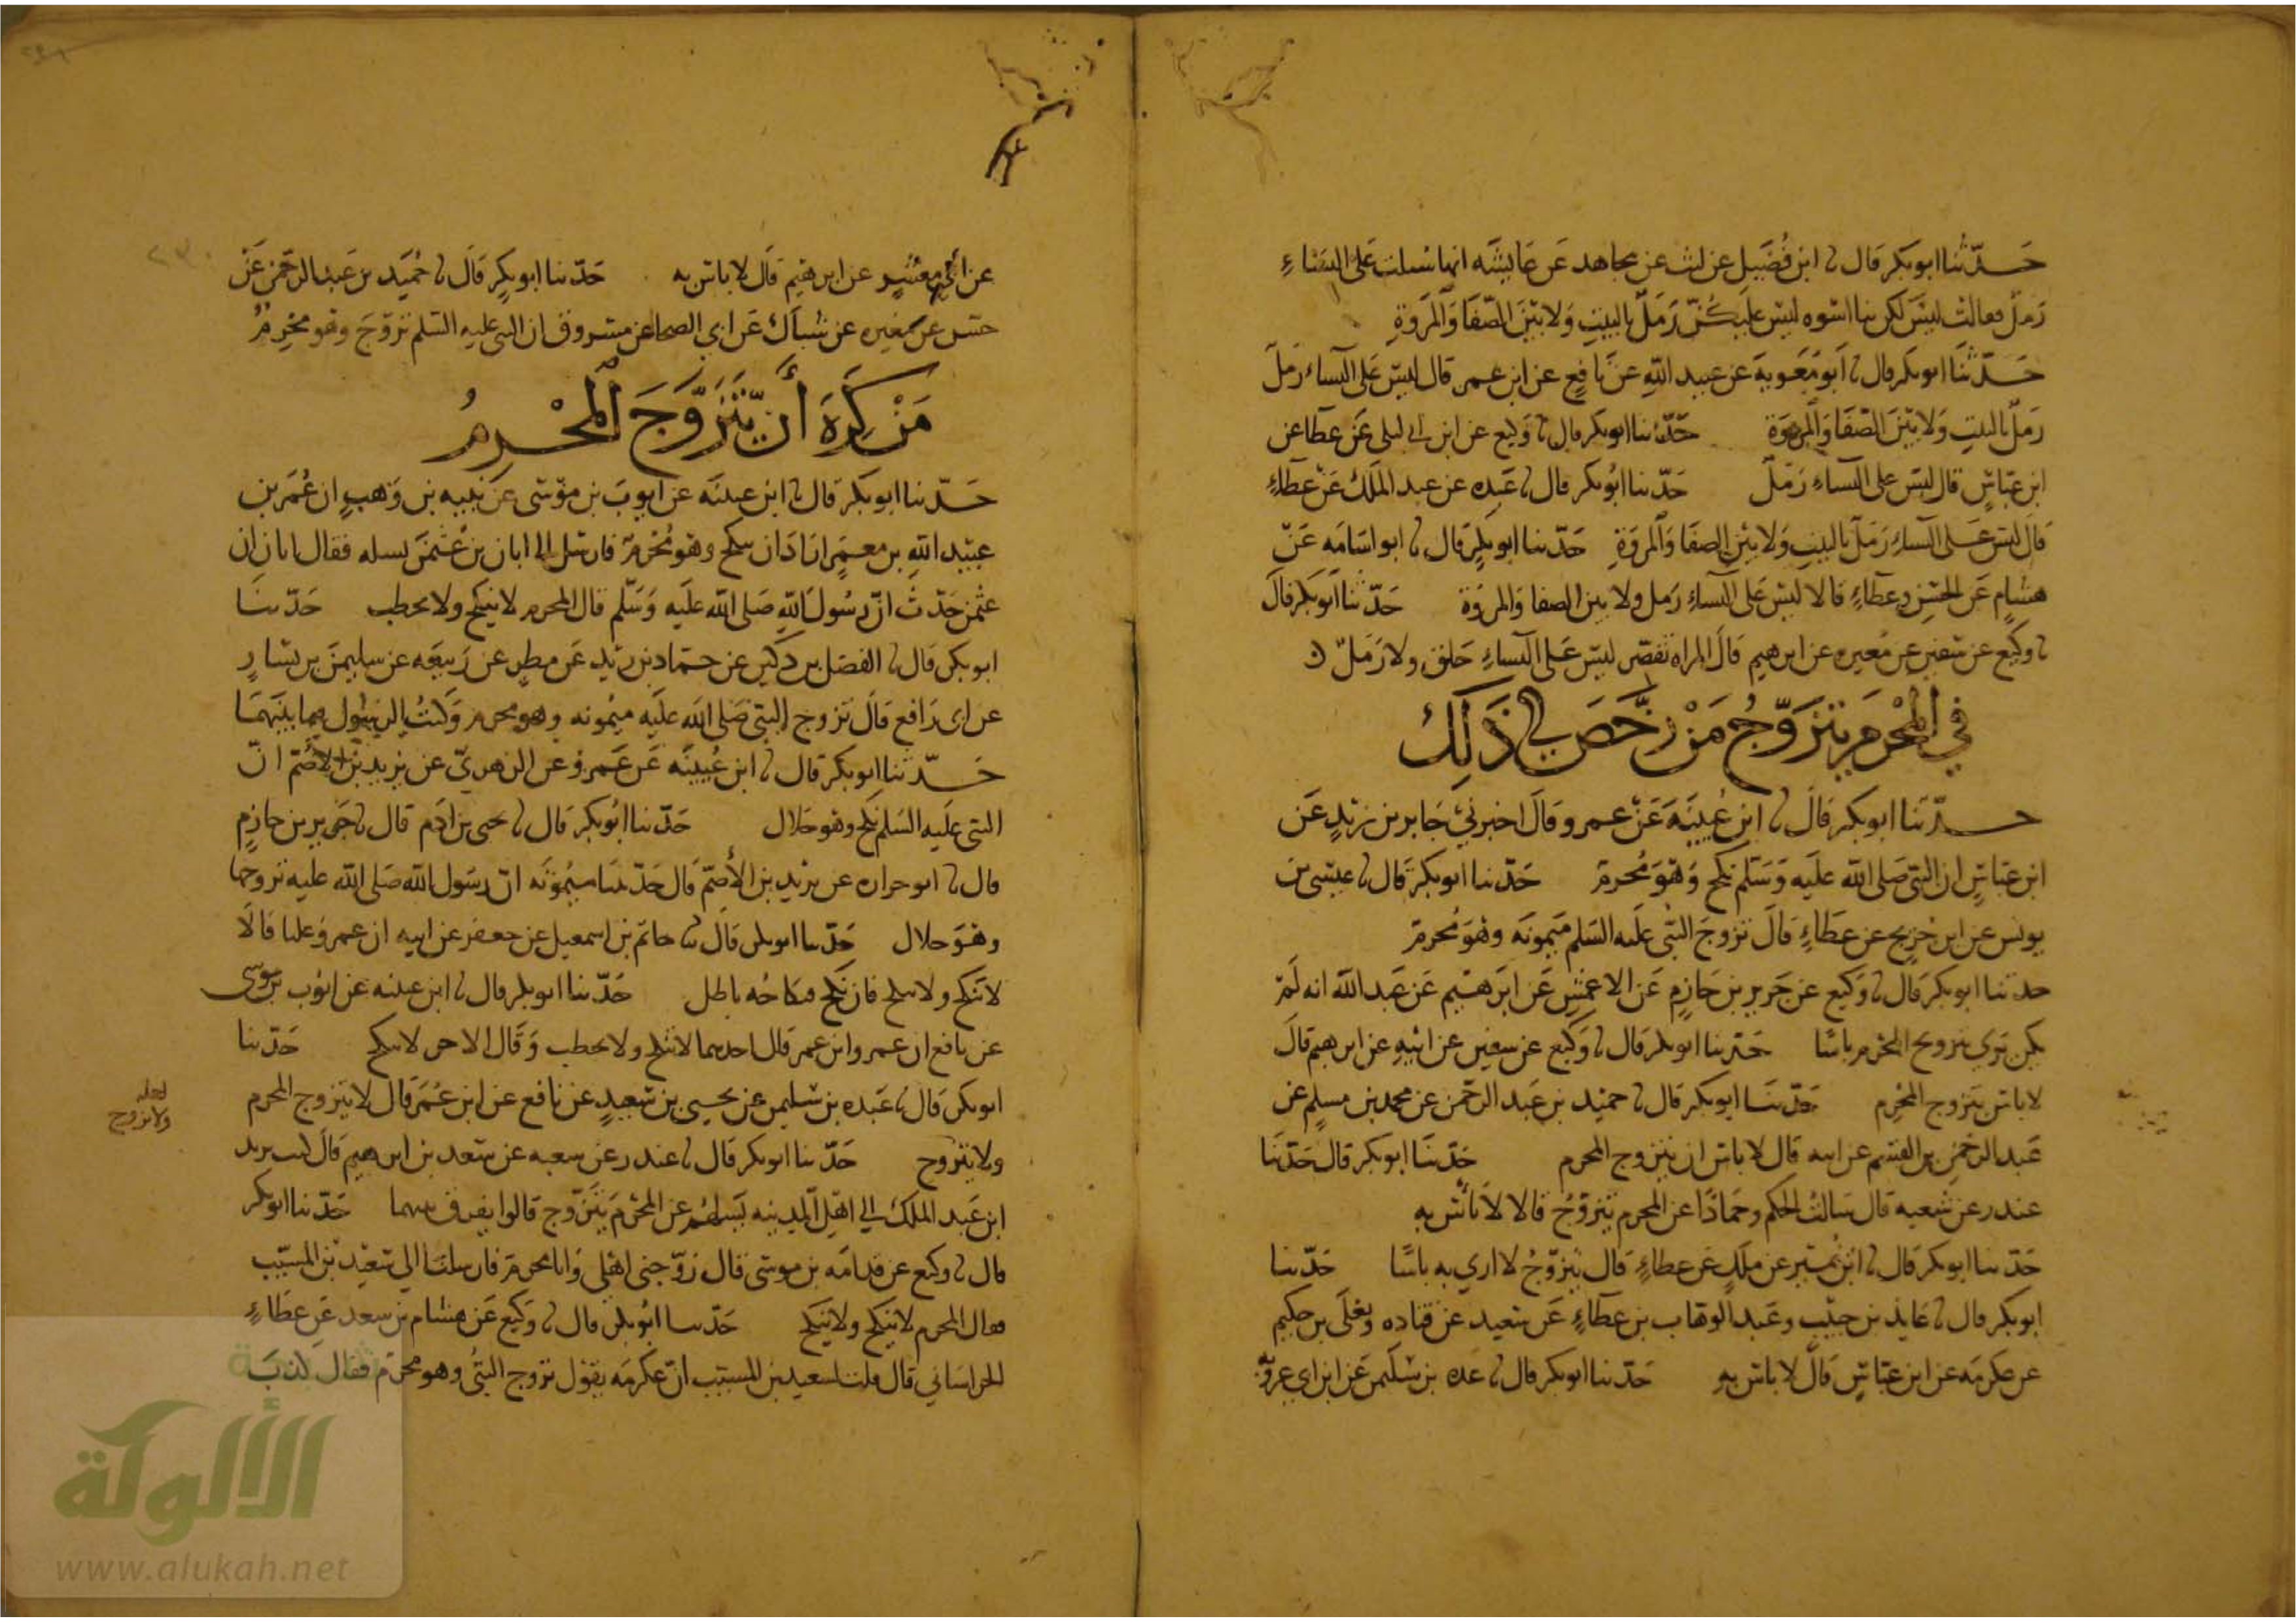 حدثنا ابو بكر قال نا ابن فضيل عن ليث عن مجاهد عن عايشه انها سئلت على النساء
رمل فقالت ليس لكن بنا اسوه ليس عليكن رمل بالبيت ولا بين الصفا والمروة
حدثنا ابو بكر قال نا ابو معوية عن عبيد الله عن نافع عن ابن عمر قال ليس على النساء رمل
رمل بالبيت ولا بين الصفا والمروة حدثنا ابو بكر قال نا وكيع عن ابن ابي ليلى عن عطا عن
ابن عباس قال ليس على النساء رمل حدثنا ابو بكر قال نا عبده عن عبد الملك عن عطاء
قال ليس على النساء رمل بالبيت ولا بين الصفا والمروة حدثنا ابو بكر قال نا ابو اسامه عن
هشام عن الحسن وعطاء قالا ليس على النساء رمل ولا بين الصفا والمروة حدثنا ابو بكر قال
نا وكيع عن سفين عن مغيره عن ابرهيم قال المراه تقصر ليس على النساء حلق ولا رمل
في المحرم يتزوج من رخص في ذلك
حدثنا ابو بكر قال نا ابن عيينه عن عمرو قال اخبرني جابر بن زيد عن
ابن عباس ان النبي صلى الله عليه وسلم نكح وهو محرم حدثنا ابو بكر قال نا عيسى بن
يونس عن ابن جريج عن عطاء قال تزوج النبي عليه السلم ميمونه وهو محرم
حدثنا ابو بكر قال نا وكيع عن جرير بن حازم عن الاعمش عن ابرهيم عن عبد الله انه لم
يكن يرى بتزويج المحرم باسا حدثنا ابو بكر قال نا وكيع عن سفين عن ابيه عن ابرهيم قال
لا باس بتزوج المحرم حدثنا ابو بكر قال نا حميد بن عبد الرحمن عن محمد بن مسلم عن
عبد الرحمن بن القسم عن ابيه قال لا باس ان يتزوج المحرم حدثنا ابو بكر قال حدثنا
غندر عن شعبه قال سالت الحكم وحمادا عن المحرم يتزوج قالا لا باس به
حدثنا ابو بكر قال نا ابن نمير عن ملك عن عطاء قال يتزوج لا ارى به باسا حدثنا
ابو بكر قال نا عايذ بن حبيب وعبد الوهاب بن عطاء عن سعيد عن قتاده ويعلى بن حكيم
عن عكرمه عن ابن عباس قال لا باس به حدثنا ابو بكر قال نا عبده بن سليمن عن ابن ابي عروبه
عن ابي معشر عن ابرهيم قال لا باس به حدثنا ابو بكر قال نا حميد بن عبد الرحمن عن
حسن عن مغيره عن شباك عن ابي الضحا عن مسروق ان النبي عليه السلم تزوج وهو محرم
من كره أن يتزوج المحرم
حدثنا ابو بكر قال نا ابن عيينه عن ايوب بن موسى عن نبيه بن وهب ان عمر بن
عبيد الله بن معمر اراد ان ينكح وهو محرم فارسل الى ابان بن عثمن يسله فقال ابان ان
عثمن حدث ان رسول الله صلى الله عليه وسلم قال المحرم لا ينكح ولا يخطب حدثنا
ابو بكر قال نا الفضل بن دكين عن حماد بن زيد عن مطر عن ربيعه عن سليمن بن يسار
عن ابي رافع قال تزوج النبي صلى الله عليه ميمونه وهو محرم وكنت الرسول فيما بينهما
حدثنا ابو بكر قال نا ابن عيينه عن عمرو عن الزهري عن يزيد بن الأصم ان
النبي عليه السلم نكح وهو حلال حدثنا ابو بكر قال نا يحيى بن ادم قال نا جرير بن حازم
قال نا ابو فزاره عن يزيد بن الأصم قال حدثتنا ميمونه ان رسول الله صلى الله عليه تزوجها
وهو حلال حدثنا ابو بكر قال نا حاتم بن اسمعيل عن جعفر عن ابيه ان عمر وعليا قالا
لا ينكح ولا ينكح فان نكح فنكاحه باطل حدثنا ابو بكر قال نا ابن عيينه عن ايوب بن موسى
عن نافع ان عمر وابن عمر قال احدهما لا ينكح ولا يخطب وقال الاخر لا ينكح حدثنا
ابو بكر قال نا عبده بن سليمن عن يحيى بن سعيد عن نافع عن ابن عمر قال لا يتزوج المحرم
لعله
ولا يزوج
ولا يتزوج حدثنا ابو بكر قال نا غندر عن شعبه عن سعد بن ابرهيم قال كتب يزيد
ابن عبد الملك الى اهل المدينه يسالهم عن المحرم يتزوج قالوا يفرق بينهما حدثنا ابو بكر
قال نا وكيع عن قدامه بن موسى قال زوجني اهلي وانا محرم فارسلنا الى سعيد بن المسيب
فقال المحرم لا ينكح ولا ينكح حدثنا ابو بكر قال نا وكيع عن هشام بن سعد عن عطاء
الخراساني قال قلت لسعيد بن المسيب ان عكرمه يقول تزوج النبي وهو محرم فقال كذب
الألوكة
www.alukah.net